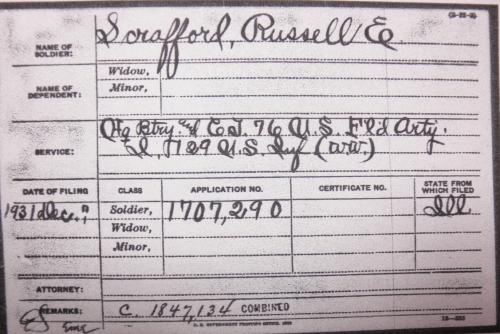 (3-22-2)
NAME OF SOLDIER: Scrafford, Russell E.
NAME OF DEPENDENT: Widow,
Minor,
SERVICE: Hq Btry and E, 76 U.S. Fld Arty.
D, 129 U.S. Inf (WW)
DATE OF FILING CLASS APPLICATION NO. CERTIFICATE NO. STATE FROM WHICH FILED
1931 Dec. 7 Soldier, 1707,290 Ill
Widow,
Minor,
ATTORNEY:
REMARKS: C. 1847,134 COMBINED
U. S. GOVERNMENT PRINTING OFFICE